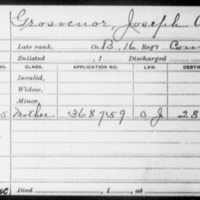 Grosvenor, Joseph
Late rank, Co. B, 16 Reg't Conn
Enlisted , 1 Discharged
CLASS. APPLICATION NO. LAW. CERTI
Invalid,
Widow,
Minor,
Mother 368759 O J 28
Died , 1 , at